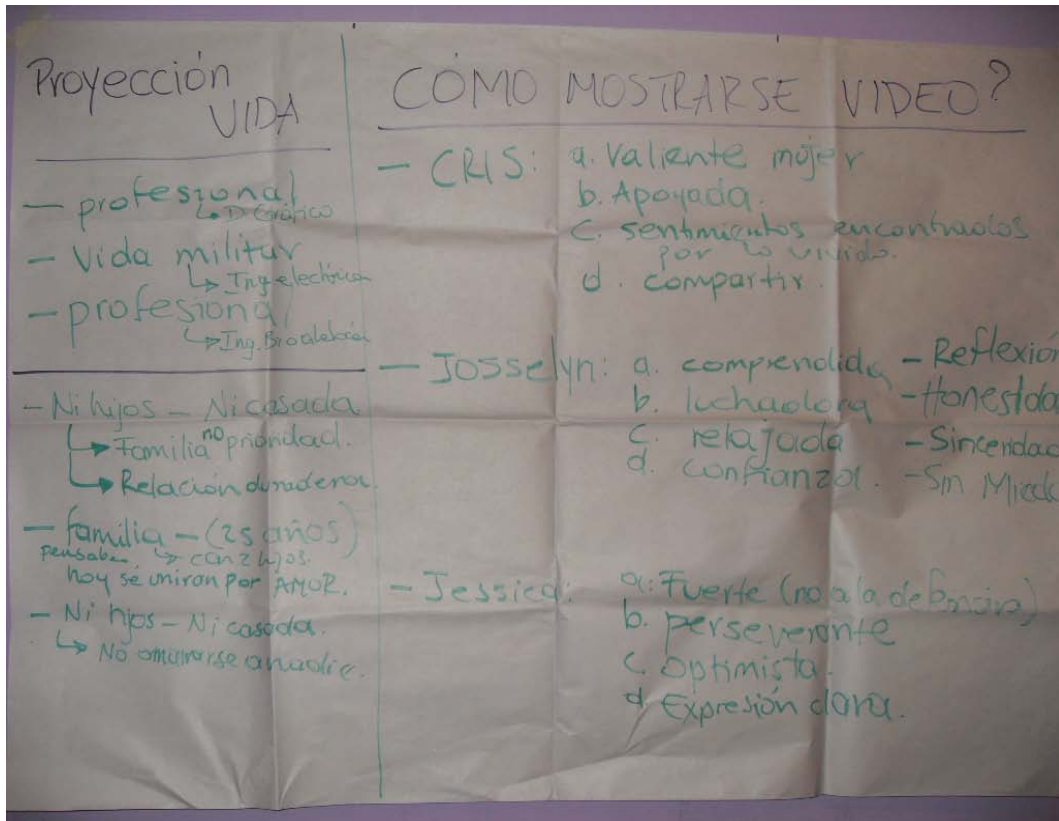 Proyección
VIDA
— profesional
↳ D Gráfico
— Vida militar
↳ Ing electrica
— profesional
↳ Ing.
— Ni hijos — Ni casada
↳ Familia no prioridad.
↳ Relación duradera.
— familia — (25 años)
pensaba ↳ con 2 hijos.
hoy se uniran por AMOR.
— Ni hijos — Ni casada.
↳ No amarrarse a nadie.
CÓMO MOSTRARSE VIDEO?
— CRIS: a. Valiente mujer
b. Apoyada.
c. sentimientos encontrados
por lo vivido.
d. compartir.
— Josselyn: a. comprendida — Reflexión
b. luchadora — Honestida
c. relajada — Sinceridad
d. confianza. — Sin Miedo
— Jessica: a. Fuerte (no a la
b. perseverante
c. Optimista.
d. Expresión clara.